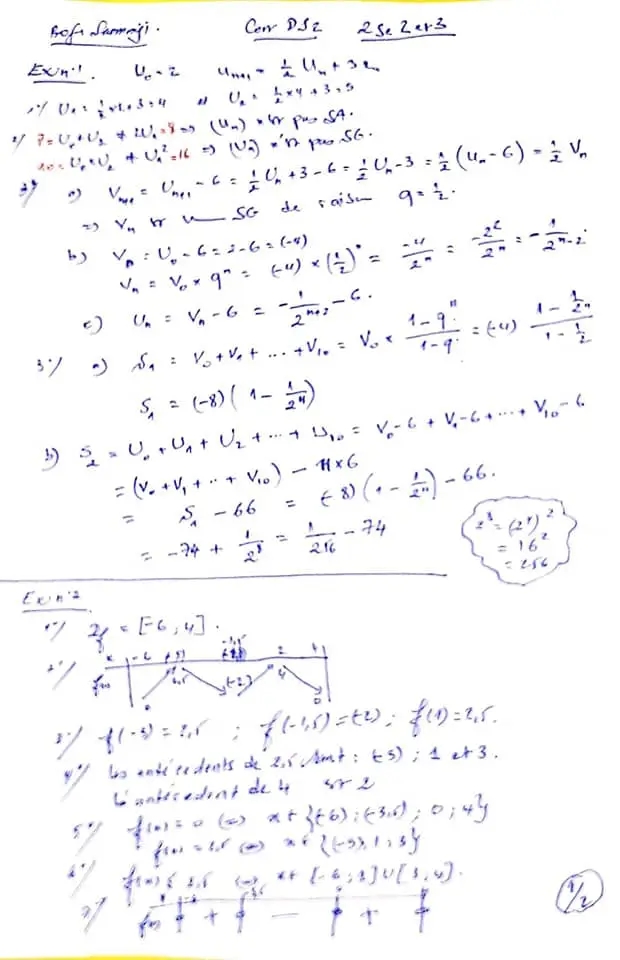 Corr DS2 2Se 2et3
Ex n°1. U₀ = 2 Uₙ₊₁ = ½ Uₙ + 3
1°/ U₁ = ½×2+3 = 4 U₂ = ½×4+3 = 5
2°/ 7 = U₀+U₂ ≠ 2U₁ = 8 ⇒ (Uₙ) n'est pas SA.
10 = U₀×U₂ ≠ U₁² = 16 ⇒ (Uₙ) n'est pas SG.
3°/ a) Vₙ₊₁ = Uₙ₊₁ − 6 = ½Uₙ + 3 − 6 = ½Uₙ − 3 = ½(Uₙ − 6) = ½ Vₙ
⇒ Vₙ est une SG de raison q = ½.
b) V₀ = U₀ − 6 = 2 − 6 = (−4)
Vₙ = V₀ × qⁿ = (−4) × (½)ⁿ = −4/2ⁿ = −2²/2ⁿ = −1/2ⁿ⁻²
c) Uₙ = Vₙ − 6 = −1/2ⁿ⁺² − 6.
3°/ a) S₁ = V₀ + V₁ + ... + V₁₀ = V₀ × (1 − q¹¹)/(1 − q) = (−4) (1 − 1/2¹¹)/(1 − ½)
S₁ = (−8)(1 − 1/2¹¹)
b) S₂ = U₀ + U₁ + U₂ + ... + U₁₀ = V₀−6 + V₁−6 + ... + V₁₀−6
= (V₀ + V₁ + ... + V₁₀) − 11×6
= S₁ − 66 = (−8)(1 − 1/2¹¹) − 66.
= −74 + 1/2⁸ = 1/256 − 74
2⁸ = (2⁴)²
= 16²
= 256
Ex n°2
1°/ = [−6 ; 4].
2°/ x −6 2 4
f(x) 0 2,5 (−2) 4 0
3°/ f(−3) = 2,5 ; f(−1,5) = (−2) ; f(1) = 2,5.
4°/ les antécédents de 2,5 sont : (−3) ; 1 et 3.
l'antécédent de 4 est 2
5°/ f(x) = 0 ⇔ x ∈ {(−6) ; (−3,5) ; 0 ; 4}
f(x) = 2,5 ⇔ x ∈ {(−3), 1 ; 3}
6°/ f(x) ≤ 2,5 ⇔ x ∈ [−6 ; 1] ∪ [3, 4].
7°/ f(x) + − +
1/2